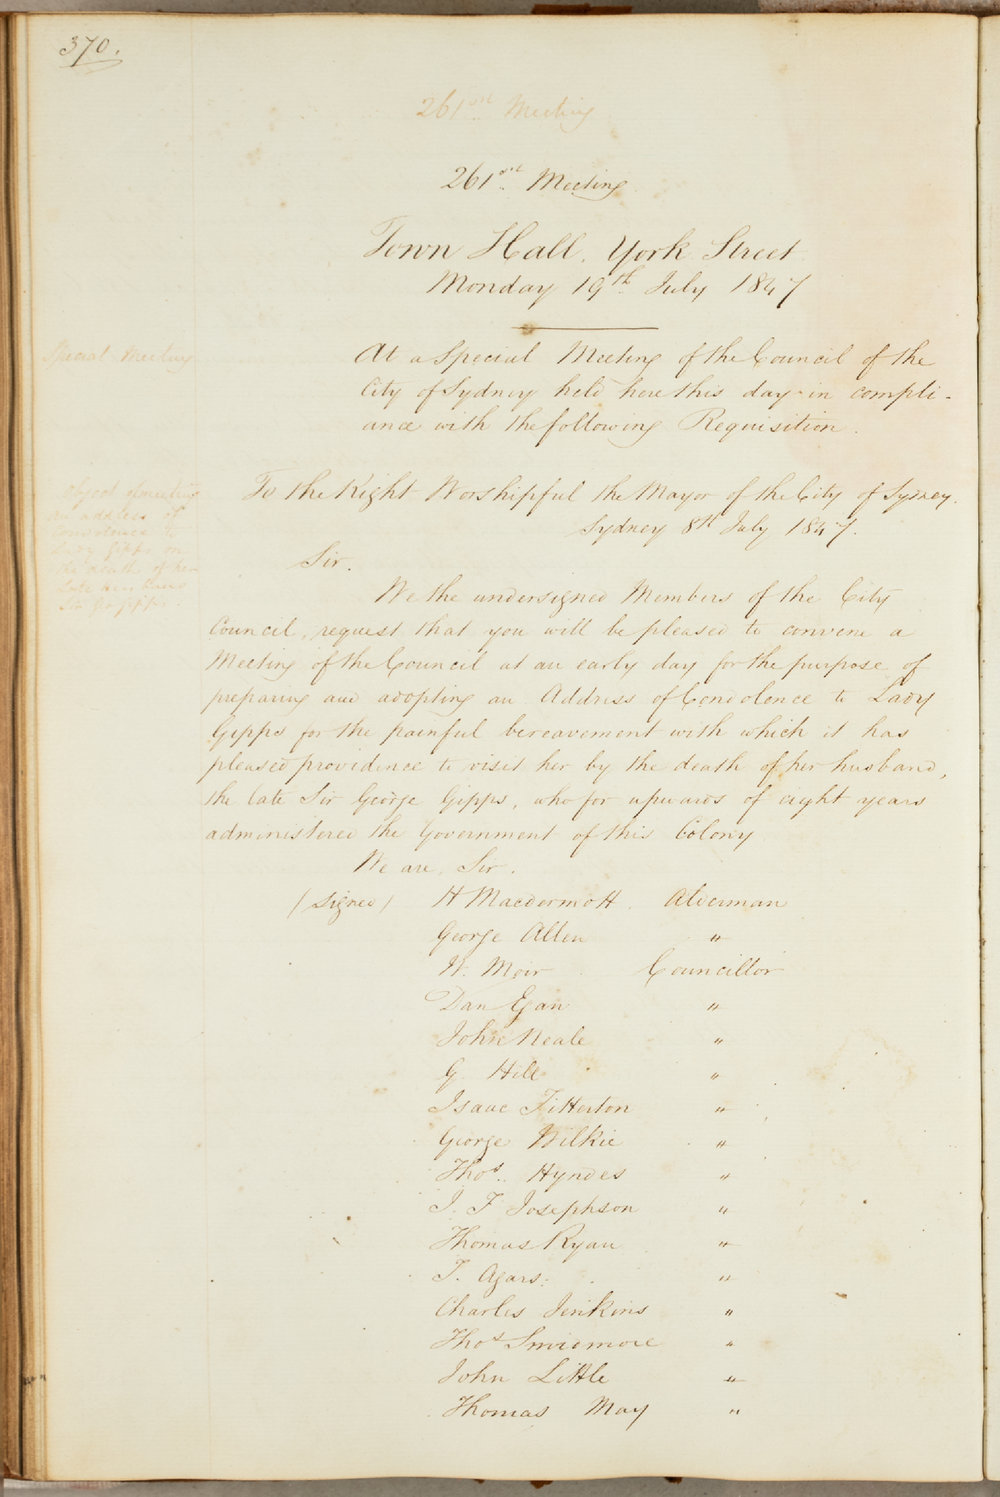 370.
261st Meeting
261st Meeting
Town Hall, York Street
Monday 19th July 1847
Special Meeting
At a Special Meeting of the Council of the
City of Sydney held here this day in compli-
ance with the following Requisition.
Object of meeting
an address of
Condolence to
Lady Gipps on
the death of her
late Husband
Sir Geo Gipps
To the Right Worshipful the Mayor of the City of Sydney.
Sydney 8th July 1847.
Sir.
We the undersigned Members of the City
Council, request that you will be pleased to convene a
Meeting of the Council at an early day for the purpose of
preparing and adopting an Address of Condolence to Lady
Gipps for the painful bereavement with which it has
pleased providence to visit her by the death of her husband,
the late Sir George Gipps, who for upwards of eight years
administered the Government of this Colony
We are, Sir.
(Signed) H Macdermott. Alderman
George Allen "
W. Moir Councillor
Dan Egan "
John Neale "
G. Hill "
Isaac Titterton "
George Wilkie "
Thos. Hyndes "
J. F Josephson "
Thomas Ryan "
T. Agars. "
Charles Jenkins "
Thos Smidmore "
John Little "
Thomas May "